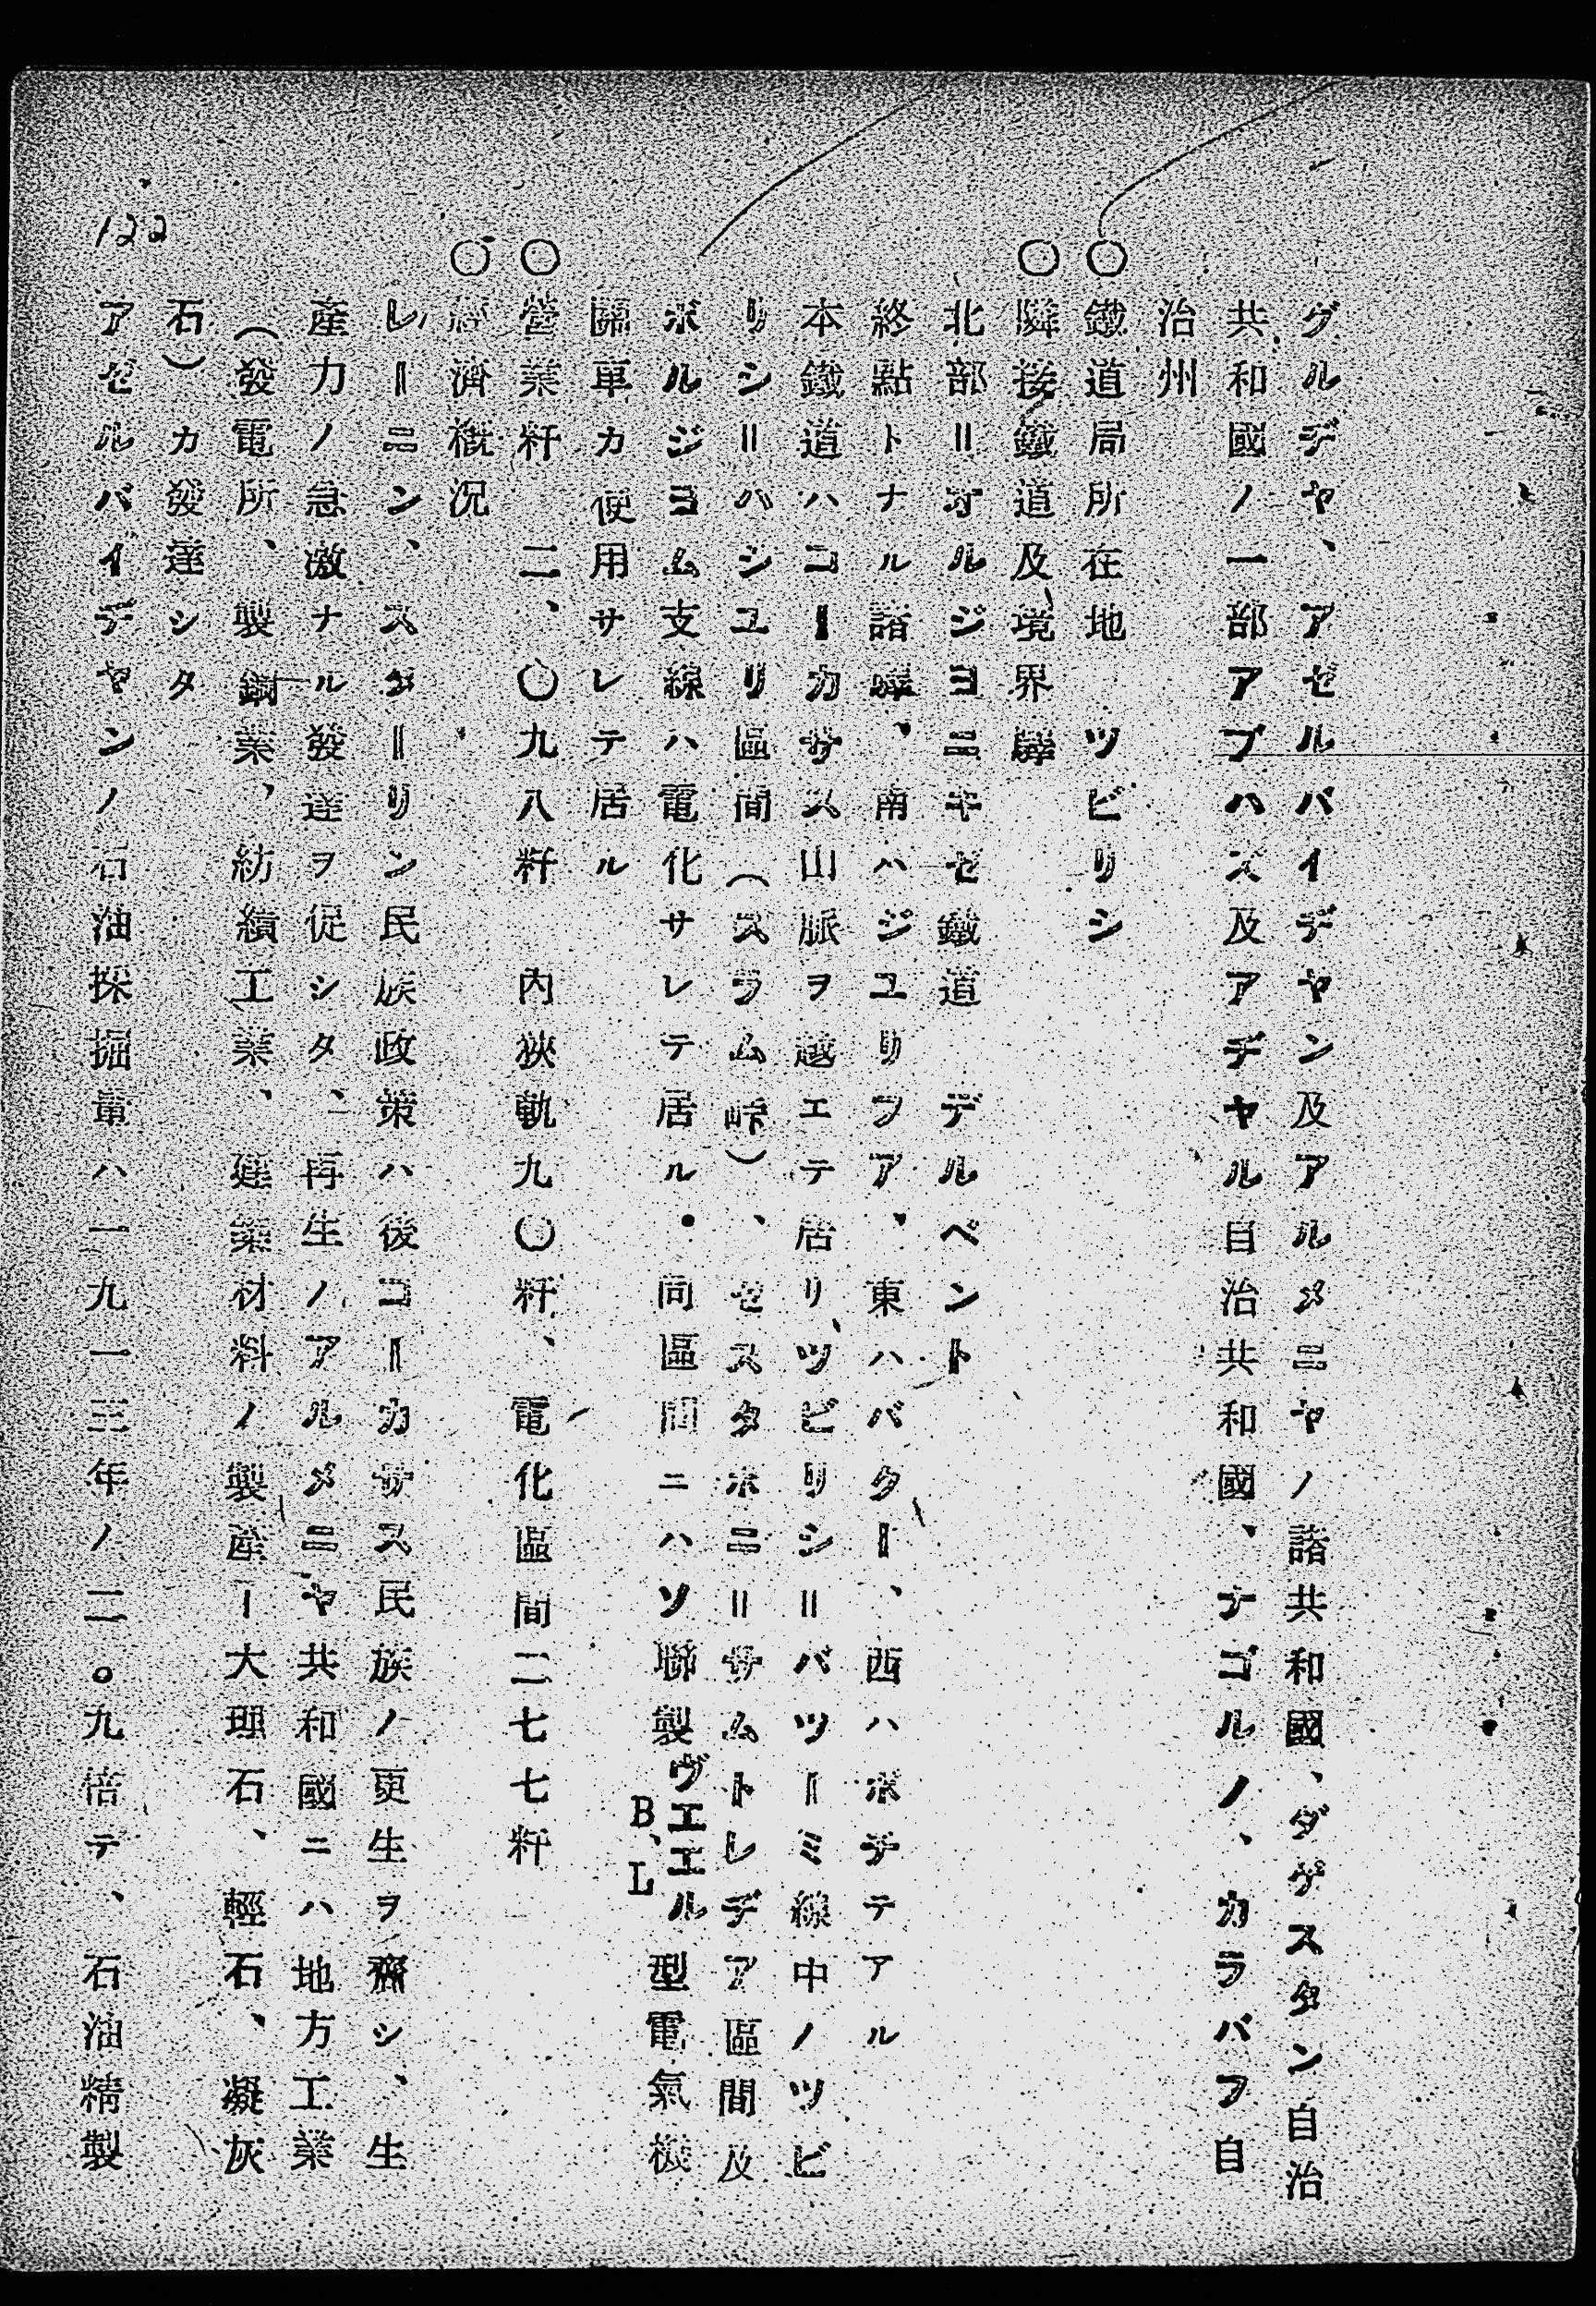 グルヂヤ、アゼルバイヂヤン及アルメニヤノ諸共和國、ダゲスタン自治
共和國ノ一部アブハズ及アヂヤル自治共和國、ナゴルノ、カラバフ自
治州
○鐵道局所在地　ツビリシ
○隣接鐵道及境界驛
北部＝オルジヨニキゼ鐵道　デルベント
終點トナル諸驛、南ハジユリフア、東ハバクー、西ハポチテアル
本鐵道ハコーカサス山脈ヲ越エテ居リ、ツビリシ＝バツーミ線中ノツビ
リシ＝ハシユリ區間（スラム峠）、セスタホニ＝サムトレヂア區間及
ボルジヨム支線ハ電化サレテ居ル・同區間ニハソ聯製ヴエエルB、L型電氣機
關車カ使用サレテ居ル
○營業粁　二、〇九八粁　內狹軌九〇粁、電化區間二七七粁
○經濟槪況
レーニン、スターリン民族政策ハ後コーカサス民族ノ更生ヲ齎シ、生
產力ノ急激ナル發達ヲ促シタ、再生ノアルメニヤ共和國ニハ地方工業
（發電所、製鋼業、紡績工業、建築材料ノ製產ー大理石、輕石、凝灰
石）カ發達シタ
アゼルバイヂヤンノ石油採掘量ハ一九一三年ノ二。九倍デ、石油精製
122